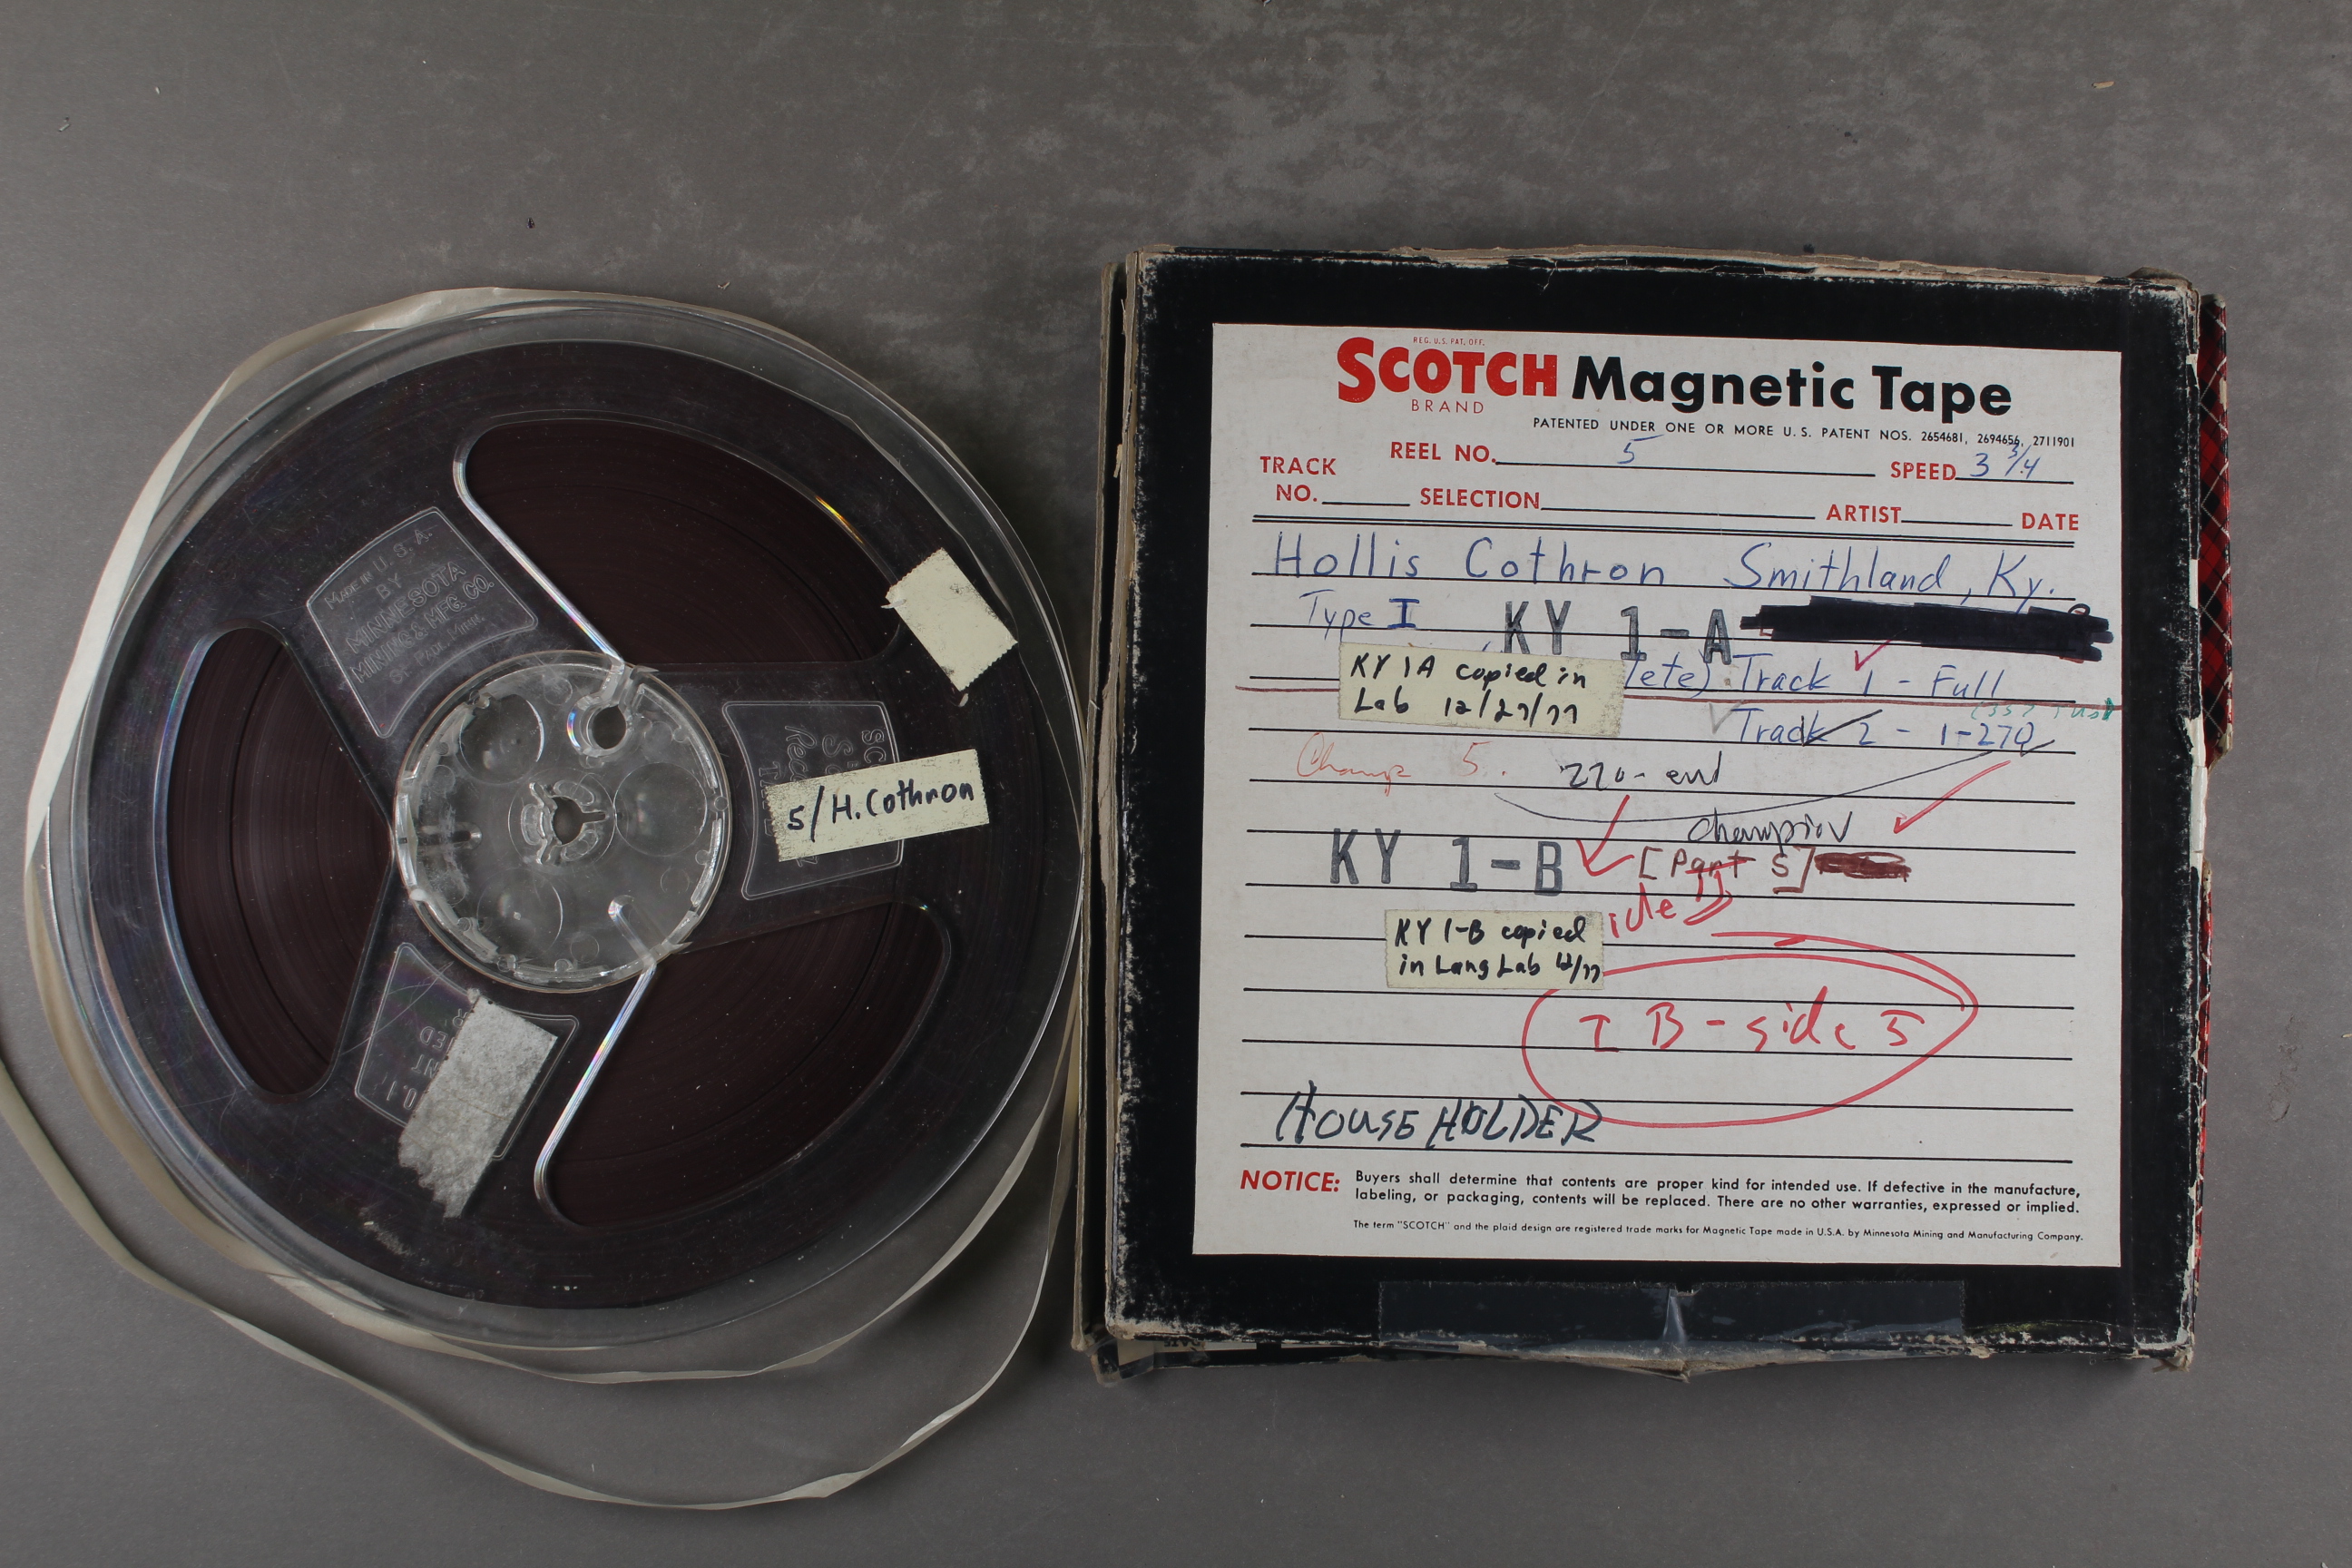 MADE IN U. S. A.
BY
MINNESOTA
MINING & MFG CO.
ST. PAUL, MINN.
5/H. Cothron
REG. U.S. PAT. OFF.
SCOTCH Magnetic Tape
BRAND
PATENTED UNDER ONE OR MORE U. S. PATENT NOS. 2654681, 2694656, 2711901
REEL NO. 5 SPEED 3 3/4
TRACK
NO. SELECTION ARTIST DATE
Hollis Cothron Smithland, Ky.
Type I KY 1-A
lete) Track 1 - Full
KY 1A copied in
Lab 12/27/77
Track 2 - 1-270
Champ 5. 270- end
champion
KY 1-B [Part 5]
KY 1-B copied
in Lang Lab 12/77
I B - side 5
HOUSEHOLDER
NOTICE: Buyers shall determine that contents are proper kind for intended use. If defective in the manufacture,
labeling, or packaging, contents will be replaced. There are no other warranties, expressed or implied.
The term "SCOTCH" and the plaid design are registered trade marks for Magnetic Tape made in U.S.A. by Minnesota Mining and Manufacturing Company.